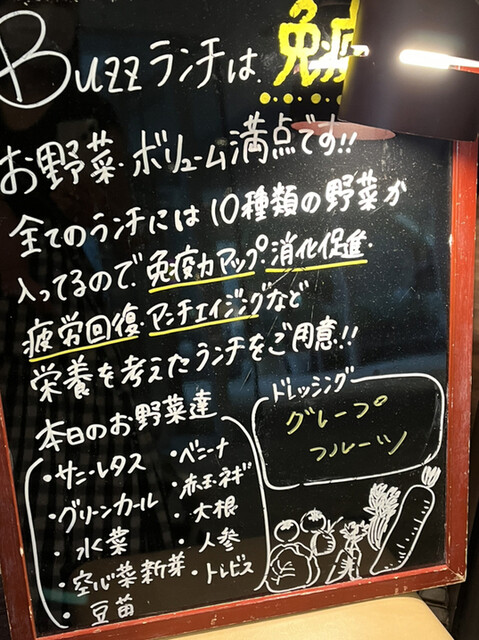 Buzzランチは、免疫
お野菜・ボリューム満点です!!
全てのランチには10種類の野菜が
入ってるので、免疫力アップ・消化促進・
疲労回復・アンチエイジングなど
栄養を考えたランチをご用意!!
本日のお野菜達
・サニーレタス
・グリーンカール
・水菜
・空心菜新芽
・豆苗
・ベニーナ
・赤玉ネギ
・大根
・人参
・トレビス
ドレッシング
グレープ
フルーツ